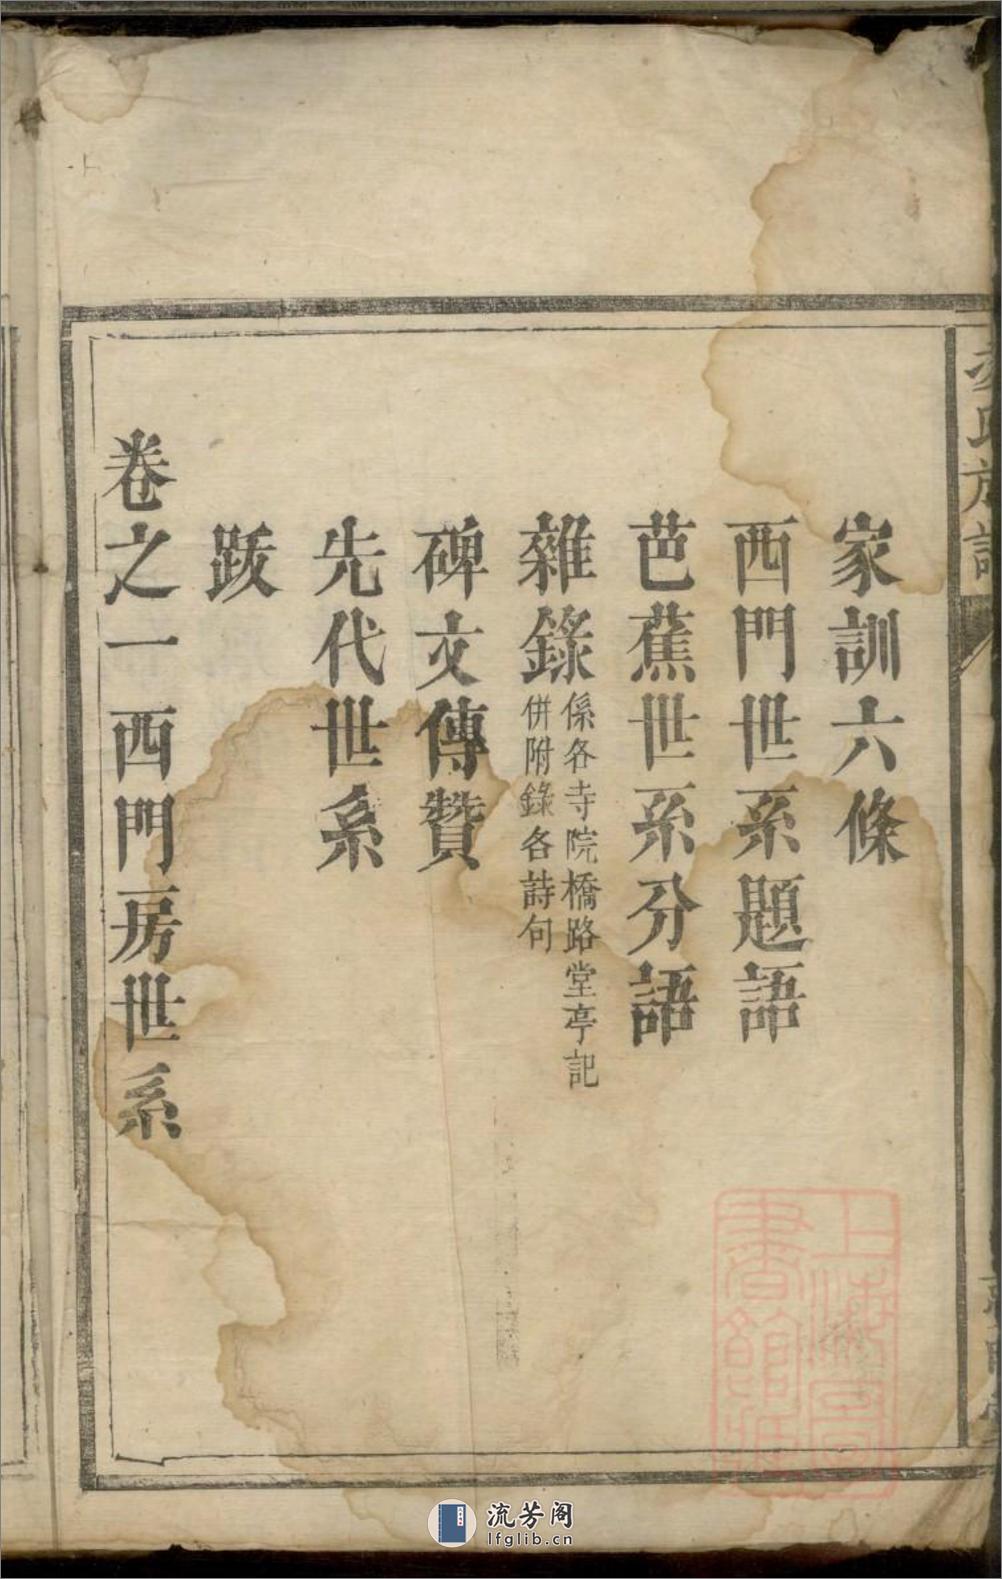 家訓六條
西門世系題語
芭蕉世系分語
雜錄
係各寺院橋路堂亭記
併附錄各詩句
碑文傳贊
先代世系
跋
卷之一西門房世系
氏族譜
上海圖書館藏
流芳阁
lfglib.cn